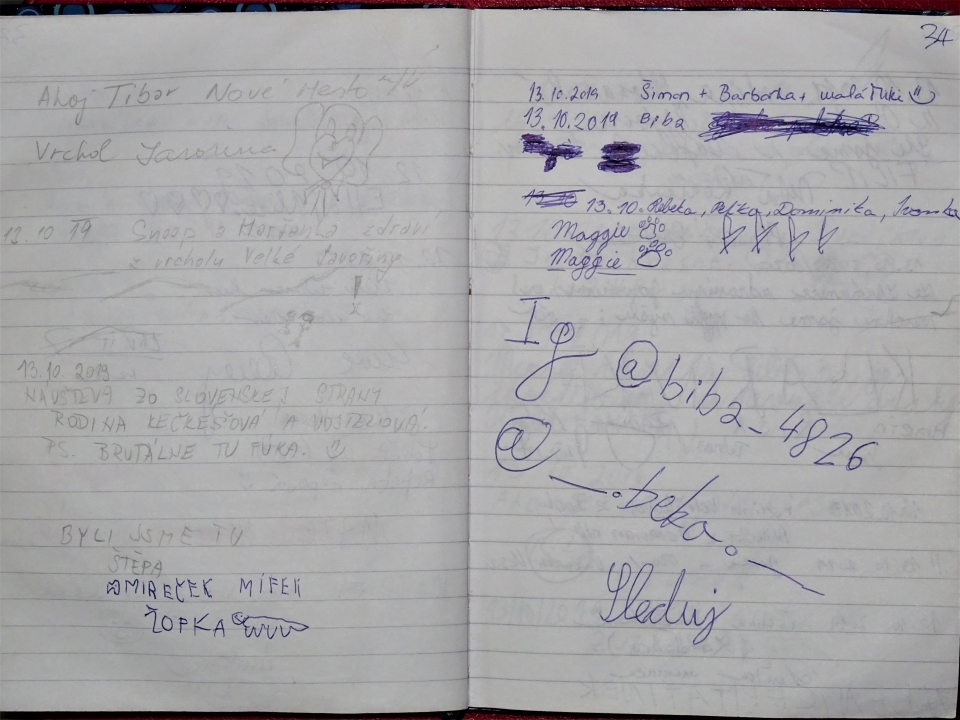 Ahoj Tibor Nové Mesto n/V
Vrchol Javorina
13.10 19 Snoop a zdraví
z vrcholu Velké Javořiny
13.10.2019
NÁVŠTEVA ZO SLOVENSKEJ STRANY
RODINA KEČKEŠOVÁ A VOJTELOVÁ.
PS. BRUTÁLNE TU FÚKA.
BYLI JSME TU
ŠTĚPA
MIREČEK MÍFEK
ŽOPKA
34
13.10.2019 Šimon + Barborka + malá Muki
13.10.2019 Biba
13.10. Rebeka, Peťka, Dominika, Ivonka
Maggie
Maggie
Ig @biba_4826
@__.beka.__
Sleduj